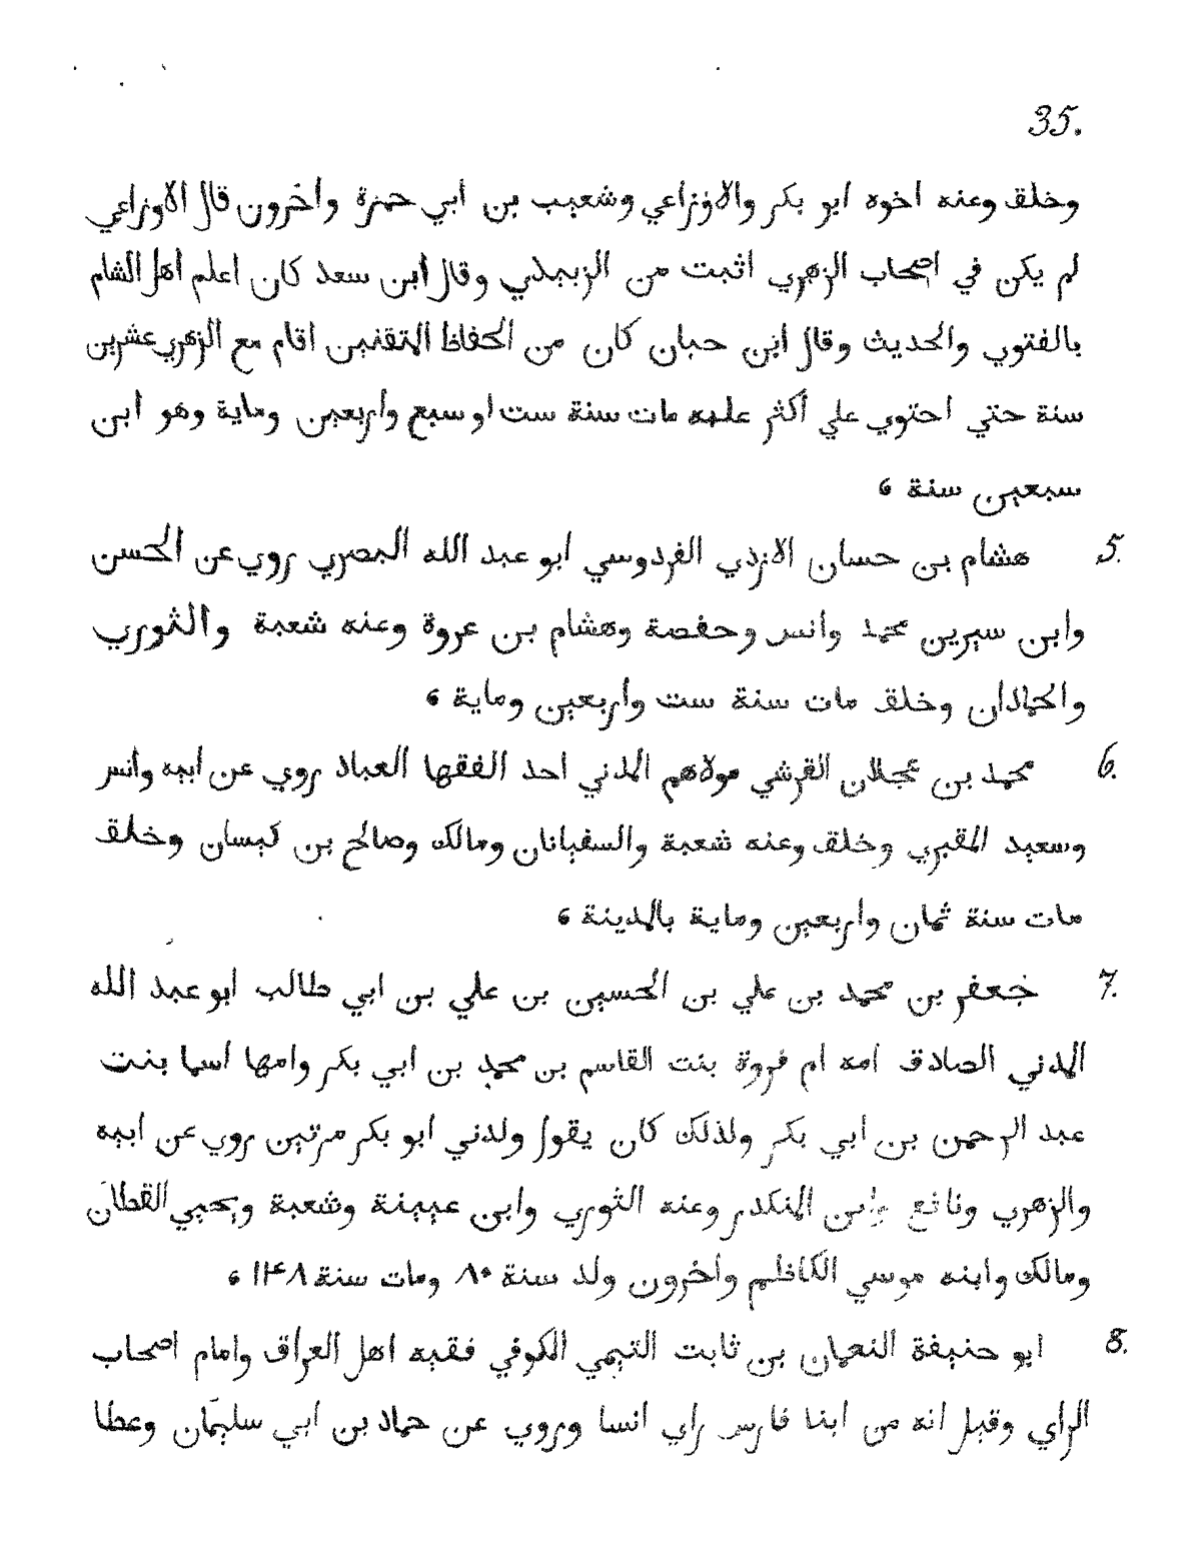 35.
وخلق وعنه اخوه ابو بكر والاوزاعي وشعيب بن ابي حمزة واخرون قال الاوزاعي
لم يكن في اصحاب الزهري اثبت من الزبيدي وقال ابن سعد كان اعلم اهل الشام
بالفتوي والحديث وقال ابن حبان كان من الحفاظ المتقنين اقام مع الزهري عشرين
سنة حتي احتوي علي أكثر علمه مات سنة ست او سبع واربعين وماية وهو ابن
سبعين سنة ۶
5. هشام بن حسان الازدي الفردوسي ابو عبد الله البصري روي عن الحسن
وابن سيرين محمد وانس وحفصة وهشام بن عروة وعنه شعبة والثوري
والحمادان وخلق مات سنة ست واربعين وماية ۶
6. محمد بن عجلان القرشي مولاهم المدني احد الفقها العباد روي عن ابيه وانس
وسعيد المقبري وخلق وعنه شعبة والسفيانان ومالك وصالح بن كيسان وخلق
مات سنة ثمان واربعين وماية بالمدينة ۶
7. جعفر بن محمد بن علي بن الحسين بن علي بن ابي طالب ابو عبد الله
المدني الصادق امه ام فروة بنت القاسم بن محمد بن ابي بكر وامها اسما بنت
عبد الرحمن بن ابي بكر ولذلك كان يقول ولدني ابو بكر مرتين روي عن ابيه
والزهري ونافع وابن المنكدر وعنه الثوري وابن عيينة وشعبة ويحيي القطان
ومالك وابنه موسي الكاظم واخرون ولد سنة ۸۰ ومات سنة ۱۴۸ ۶
8. ابو حنيفة النعمان بن ثابت التيمي الكوفي فقيه اهل العراق وامام اصحاب
الراي وقيل انه من ابنا فارس راي انسا وروي عن حماد بن ابي سليمان وعطا